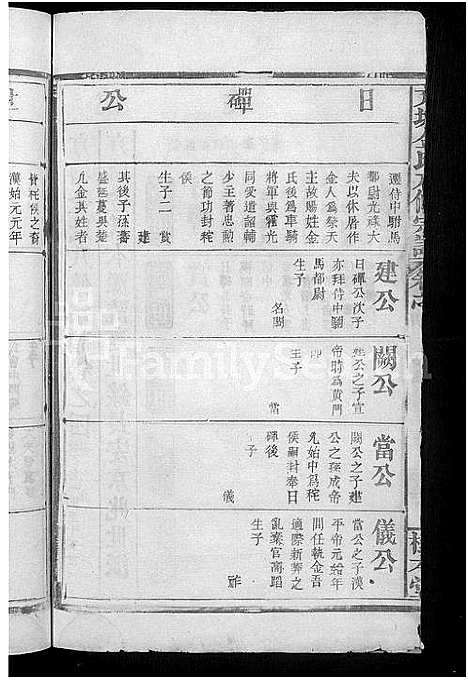 日磾公
遷侍中駙馬
都尉光祿大
夫以休屠作
金人爲祭天
主故賜姓金
氏後爲車騎
將軍與霍光
同受遺詔輔
少主著忠勤
之節功封秺
侯
生子二 賞
建
其後子孫蕃
盛蔓吳楚
凡金其姓者
建公
日磾公次子
亦拜侍中駙
馬都尉
生子
名闕
闕公
建公之子宣
帝時爲黃門
郎
生子
當
當公
闕公之子建
公之孫成帝
元始中爲秺
侯嗣封奉日
磾後
生子
儀
儀公
當公之子漢
平帝元始年
間任執金吾
適際新莽之
亂棄官高蹈
生子
漢始元元年
FamilySearch